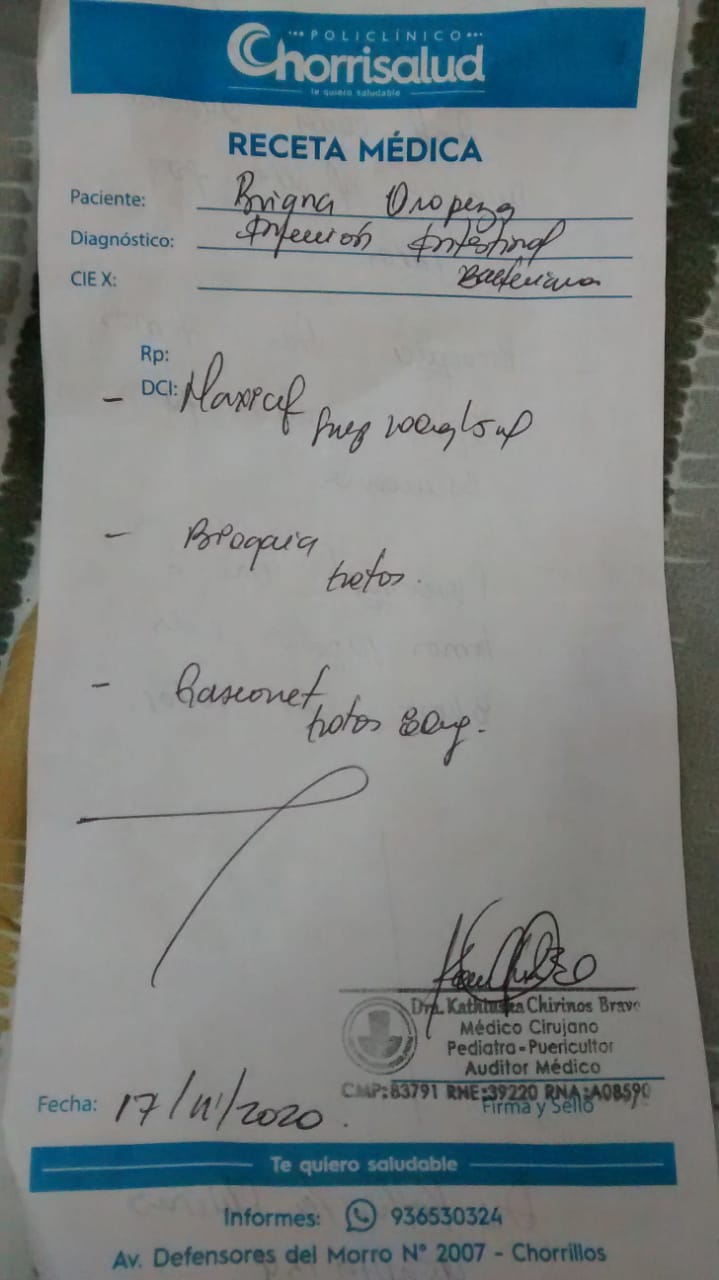 POLICLÍNICO
Chorrisalud
te quiero saludable
RECETA MÉDICA
Paciente: Briana Oropeza
Diagnóstico: Infección Intestinal
CIE X: Bacteriana
Rp:
DCI:
- Maxicef
- 
gotas
- Gaseonet
gotas 80mg.
Dra. Kathiuska Chirinos Bravo
Médico Cirujano
Pediatra - Puericultor
Auditor Médico
CMP:83791 RNE:39220 RNA:A08590
Firma y Sello
Fecha: 17/11/2020.
Te quiero saludable
Informes: 936530324
Av. Defensores del Morro N° 2007 - Chorrillos